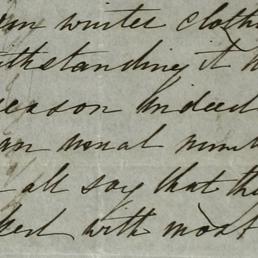 winter cloth
ithstanding it
season Indeed
an usual num
all say that th
ked with most